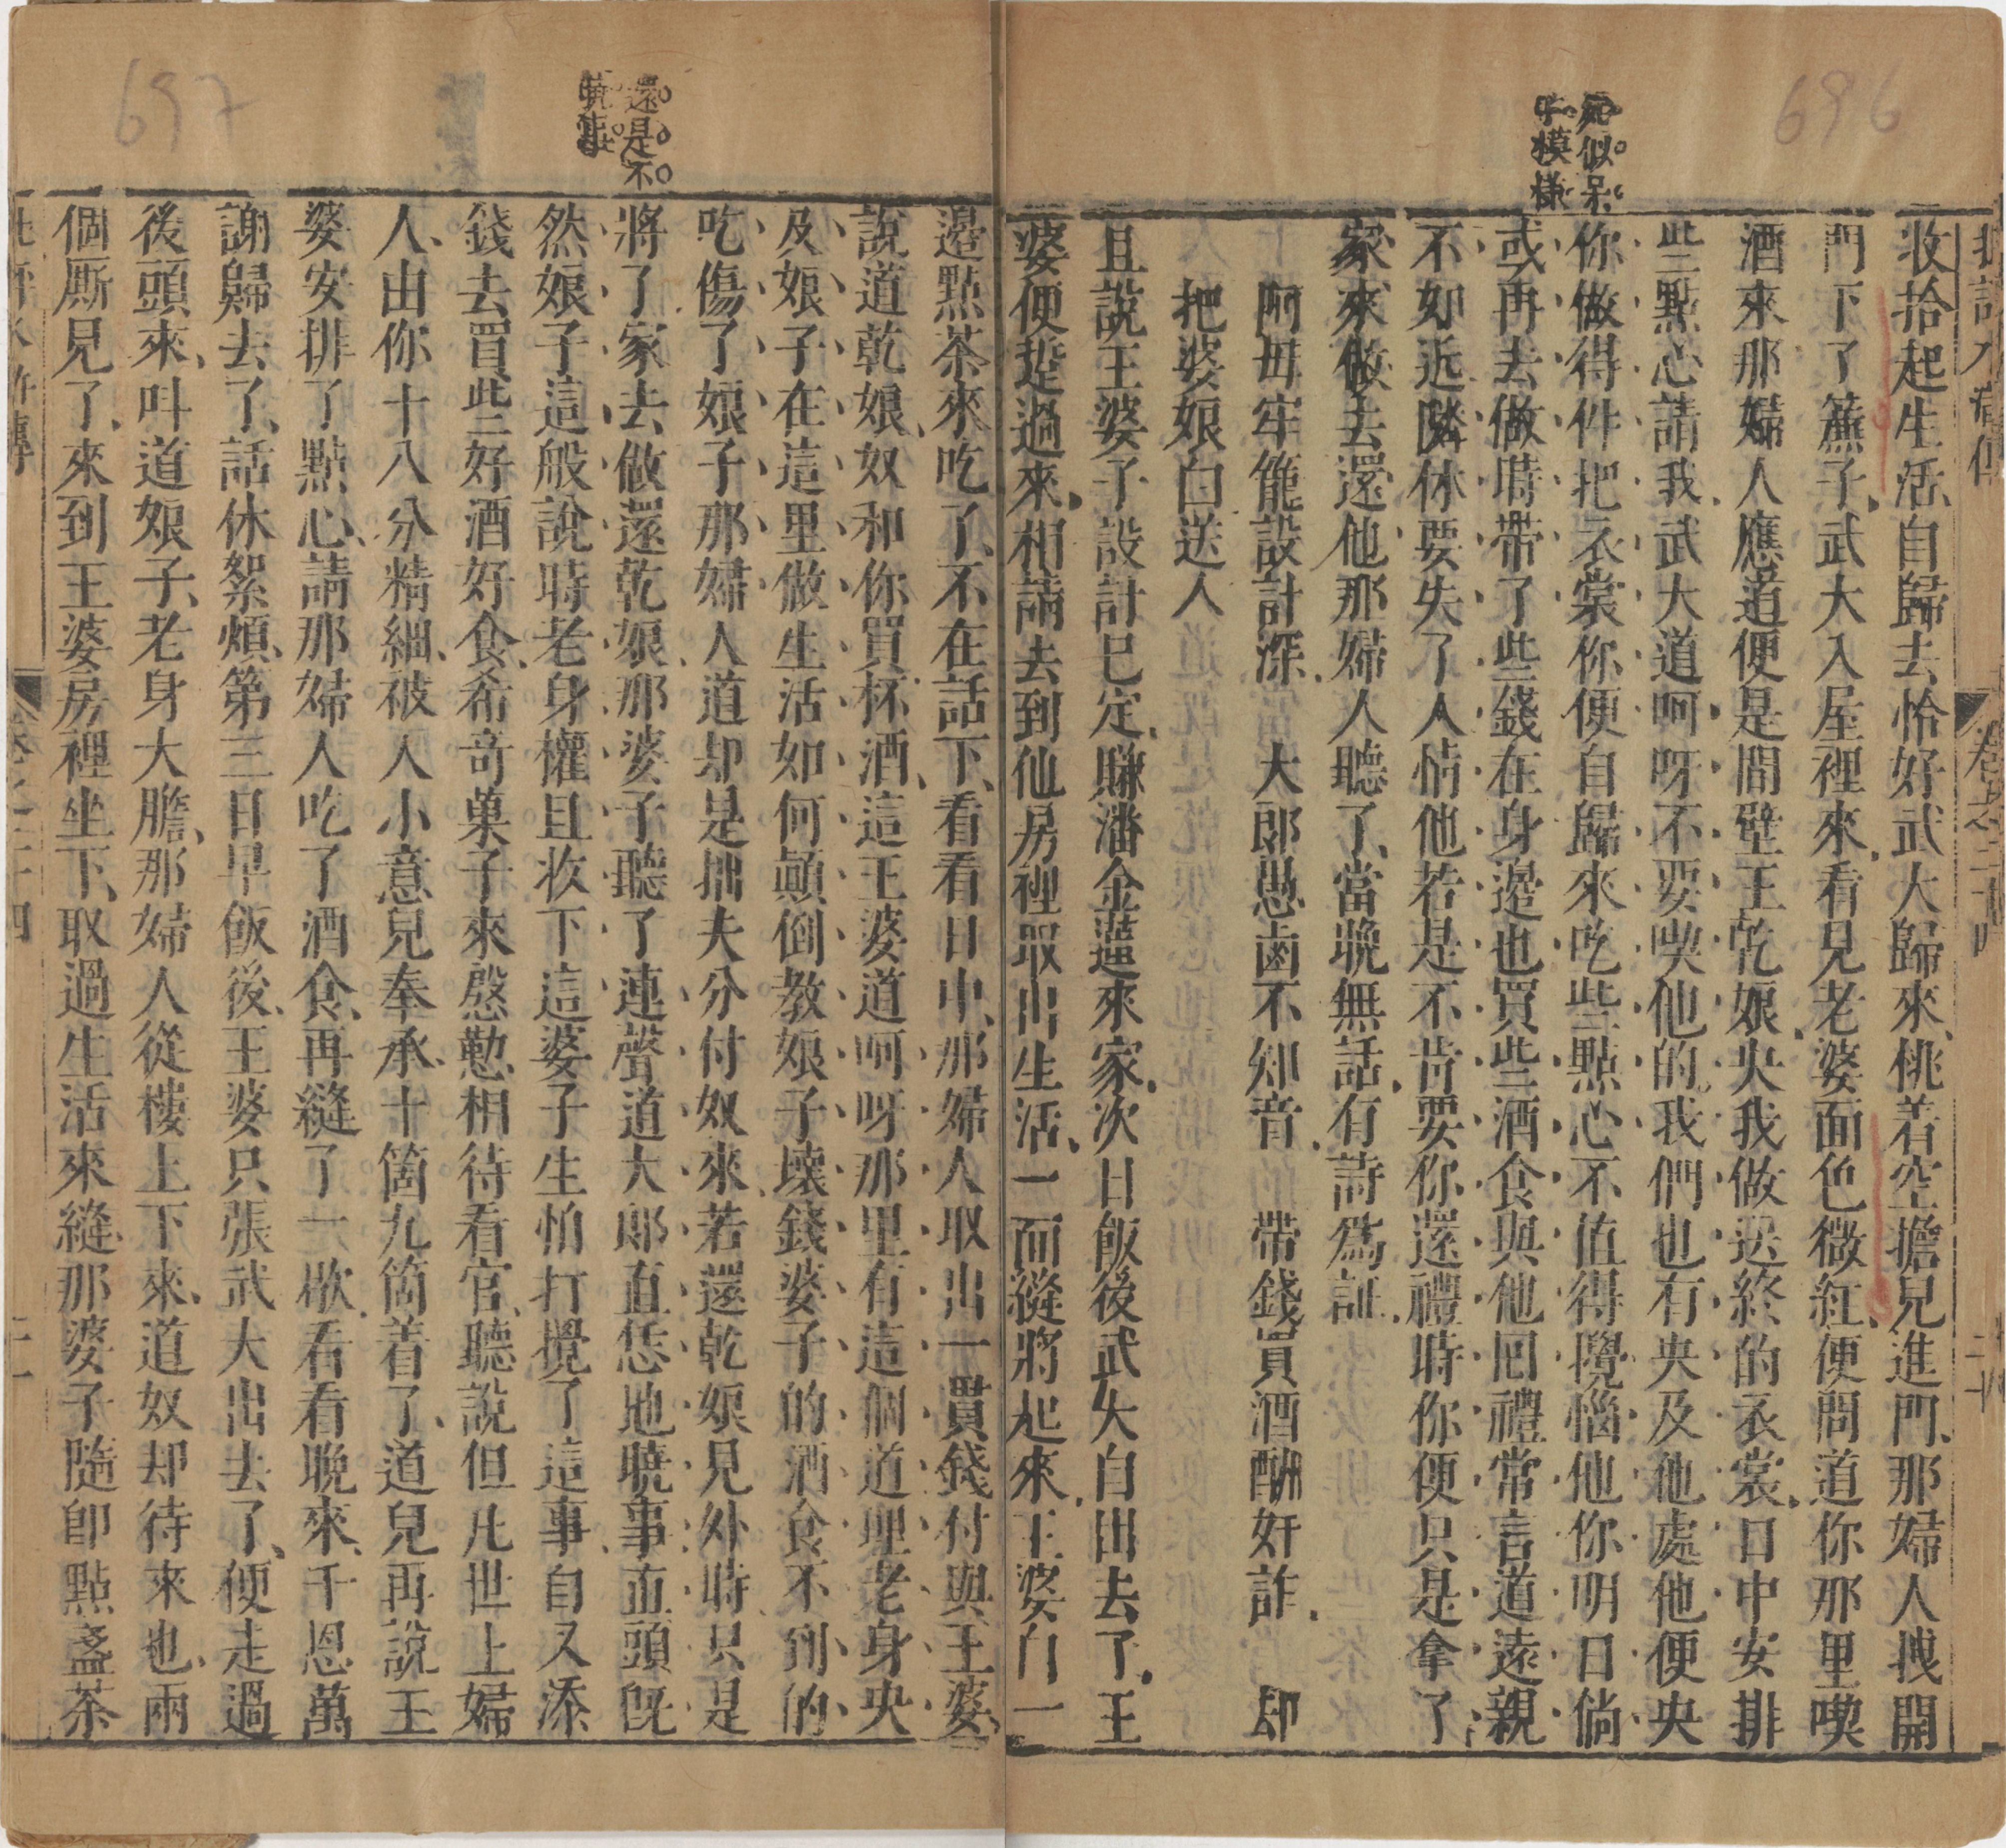 696
宛似呆
子模様
批評水滸傳
卷之二十四
二十
收拾起生活自歸去恰好武大歸來桃着空擔兒進門那婦人拽開
門下了簾子武大入屋裡來看見老婆面色微紅便問道你那里喫
酒來那婦人應道便是間壁王乾娘央我做送終的衣裳日中安排
些點心請我武大道呵呀不要喫他的我們也有央及他處他便央
你做得件把衣裳你便自歸來吃些點心不值得攪惱他你明日倘
或再去做時帶了些錢在身邊也買些酒食與他囘禮常言道遠親
不如近隣休要失了人情他若是不肯要你還禮時你便只是拿了
家來做去還他那婦人聽了當晚無話有詩爲証
阿毋牢籠設計深　大郎愚鹵不知音　帶錢買酒酬奸詐　却
把婆娘白送人
且說王婆子設計已定賺潘金蓮來家次日飯後武大自出去了王
婆便踅過來相請去到他房裡取出生活一面縫將起來王婆自一
697
還是不
曉事
邊點茶來吃了不在話下看看日中那婦人取出一貫錢付與王婆
說道乾娘奴和你買杯酒這王婆道呵呀那里有這個道理老身央
及娘子在這里做生活如何顛倒教娘子壞錢婆子的酒食不到的
吃傷了娘子那婦人道却是拙夫分付奴來若還乾娘見外時只是
將了家去做還乾娘那婆子聽了連聲道大郎直恁地曉事直頭旣
然娘子這般說時老身權且收下這婆子生怕打攪了這事自又添
錢去買些好酒好食希奇菓子來慇懃相待看官聽說但凡世上婦
人由你十八分精細被人小意兒奉承十箇九箇着了道兒再說王
婆安排了點心請那婦人吃了酒食再縫了一歇看看晚來千恩萬
謝歸去了話休絮煩第三日早飯後王婆只張武大出去了便走過
後頭來呌道娘子老身大膽那婦人從樓上下來道奴却待來也兩
個厮見了來到王婆房裡坐下取過生活來縫那婆子隨卽點盞茶
批評水滸傳
卷之二十四